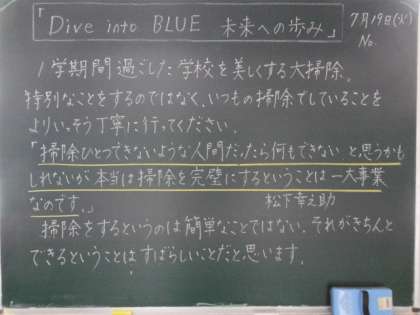 「Dive into BLUE 未来への歩み」
7月19日(火)
No.
1学期間過ごした学校を美しくする大掃除。
特別なことをするのではなく、いつもの掃除でしていることを
よりいっそう丁寧に行ってください。
「掃除ひとつできないような人間だったら何もできないと思うかも
しれないが本当は掃除を完璧にするということは一大事業
なのです。」
松下幸之助
掃除をするというのは簡単なことではない。それがきちんと
できるということはすばらしいことだと思います。